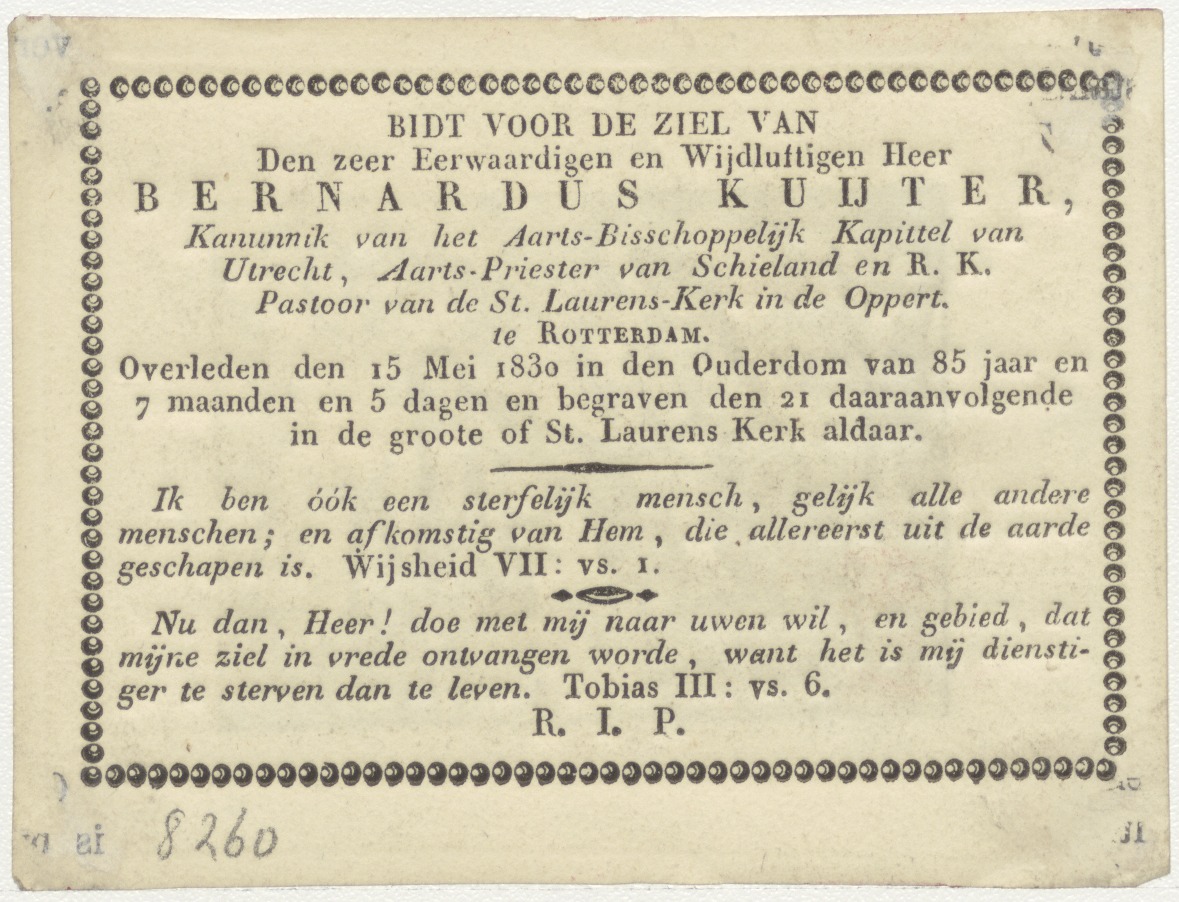 BIDT VOOR DE ZIEL VAN
Den zeer Eerwaardigen en Wijdluftigen Heer
BERNARDUS KUIJTER,
Kanunnik van het Aarts-Bisschoppelijk Kapittel van
Utrecht, Aarts-Priester van Schieland en R. K.
Pastoor van de St. Laurens-Kerk in de Oppert.
te ROTTERDAM.
Overleden den 15 Mei 1830 in den Ouderdom van 85 jaar en
7 maanden en 5 dagen en begraven den 21 daaraanvolgende
in de groote of St. Laurens Kerk aldaar.
Ik ben óók een sterfelijk mensch, gelijk alle andere
menschen; en afkomstig van Hem, die allereerst uit de aarde
geschapen is. Wijsheid VII: vs. 1.
Nu dan, Heer! doe met mij naar uwen wil, en gebied, dat
mijne ziel in vrede ontvangen worde, want het is mij diensti-
ger te sterven dan te leven. Tobias III: vs. 6.
R. I. P.
8260